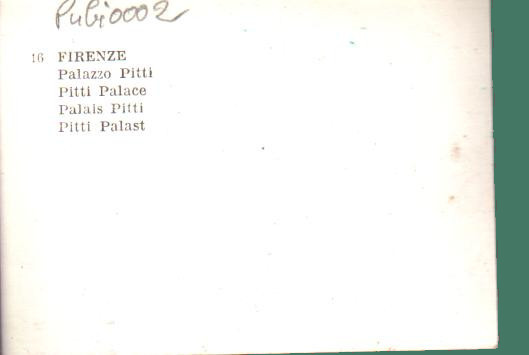 Pubi0002
16 FIRENZE
Palazzo Pitti
Pitti Palace
Palais Pitti
Pitti Palast